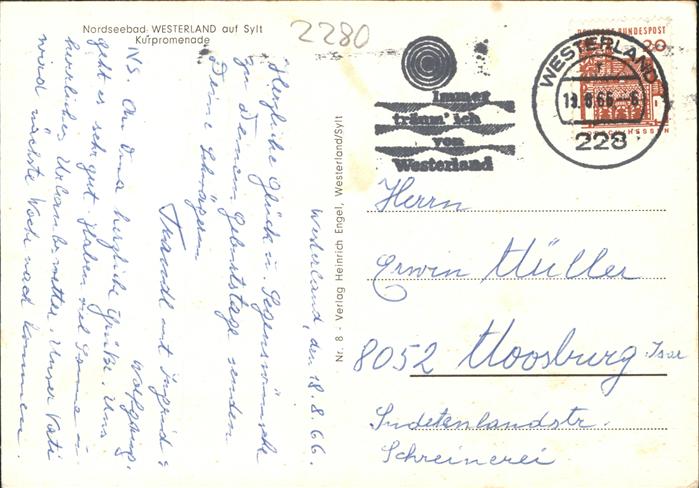 Nordseebad WESTERLAND auf Sylt
Kurpromenade
2280
Westerland, den 18.8.66.
Herzliche Glück- u. Segenswünsche
zu Deinem Geburtstage senden
Deine Schwägerin
mit Ingrid u.
Wolfgang.
NS. An Oma herzliche Grüße. Uns
geht es sehr gut. Haben viel Sonne u.
herrliches Urlaubswetter. Unser Vati
wird nächste Woche nach kommen.
Nr. 8 - Verlag Heinrich Engel, Westerland/Sylt
Immer
träum' ich
von
Westerland
WESTERLAND
18.8.66-6
228
DEUTSCHE BUNDESPOST
20
Herrn
Erwin Müller
8052 Moosburg Isar
Sudetenlandstr.
Schreinerei